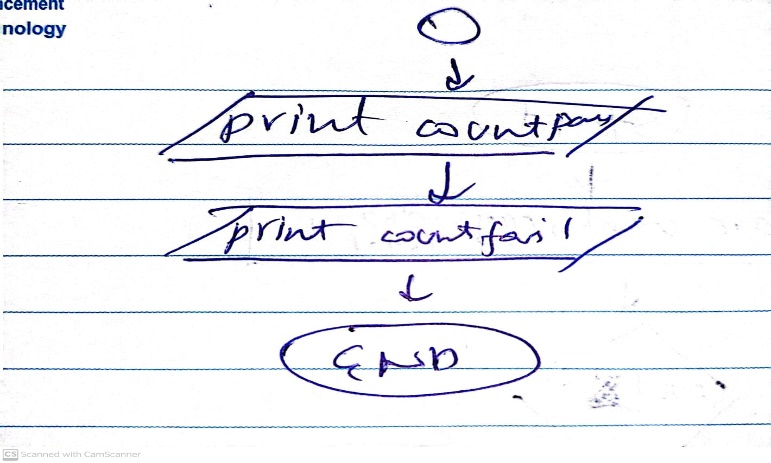 ncement
nology
print countpass
print countfail
END
CS Scanned with CamScanner